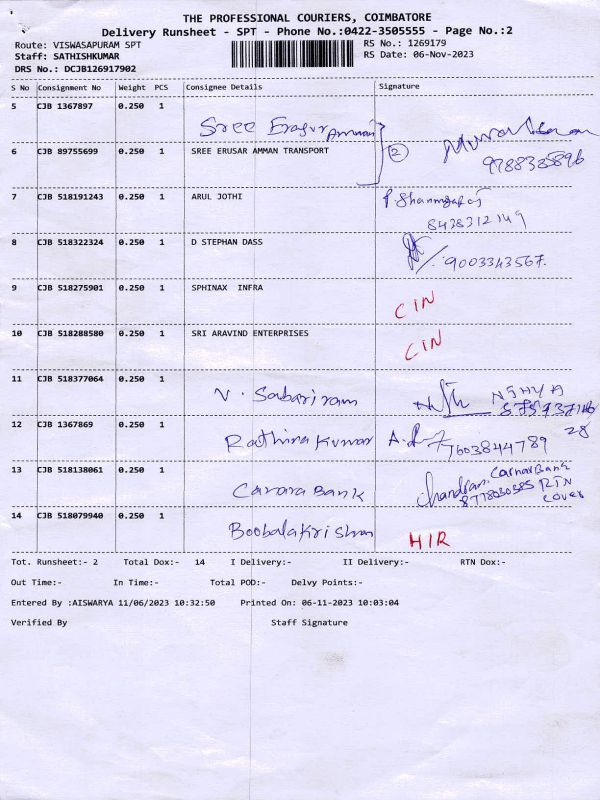 THE PROFESSIONAL COURIERS, COIMBATORE
Delivery Runsheet - SPT - Phone No.:0422-3505555 - Page No.:2
Route: VISWASAPURAM SPT RS No.: 1269179
Staff: SATHISHKUMAR RS Date: 06-Nov-2023
DRS No.: DCJB126917902
S No Consignment No Weight PCS Consignee Details Signature
5 CJB 1367897 0.250 1 Sree Erasur Amman
6 CJB 89755699 0.250 1 SREE ERUSAR AMMAN TRANSPORT 2
9788335896
7 CJB 518191243 0.250 1 ARUL JOTHI
8438312149
8 CJB 518322324 0.250 1 D STEPHAN DASS
9003343567.
9 CJB 518275901 0.250 1 SPHINAX INFRA CIN
10 CJB 518288580 0.250 1 SRI ARAVIND ENTERPRISES CIN
11 CJB 518377064 0.250 1 V. Sabariram
12 CJB 1367869 0.250 1 Rathina Kumar 7603844789
13 CJB 518138061 0.250 1 Canara Bank Canara Bank
RTN
cover
14 CJB 518079940 0.250 1 Boobalakrishnan HIR
Tot. Runsheet:- 2 Total Dox:- 14 I Delivery:- II Delivery:- RTN Dox:-
Out Time:- In Time:- Total POD:- Delvy Points:-
Entered By :AISWARYA 11/06/2023 10:32:50 Printed On: 06-11-2023 10:03:04
Verified By Staff Signature